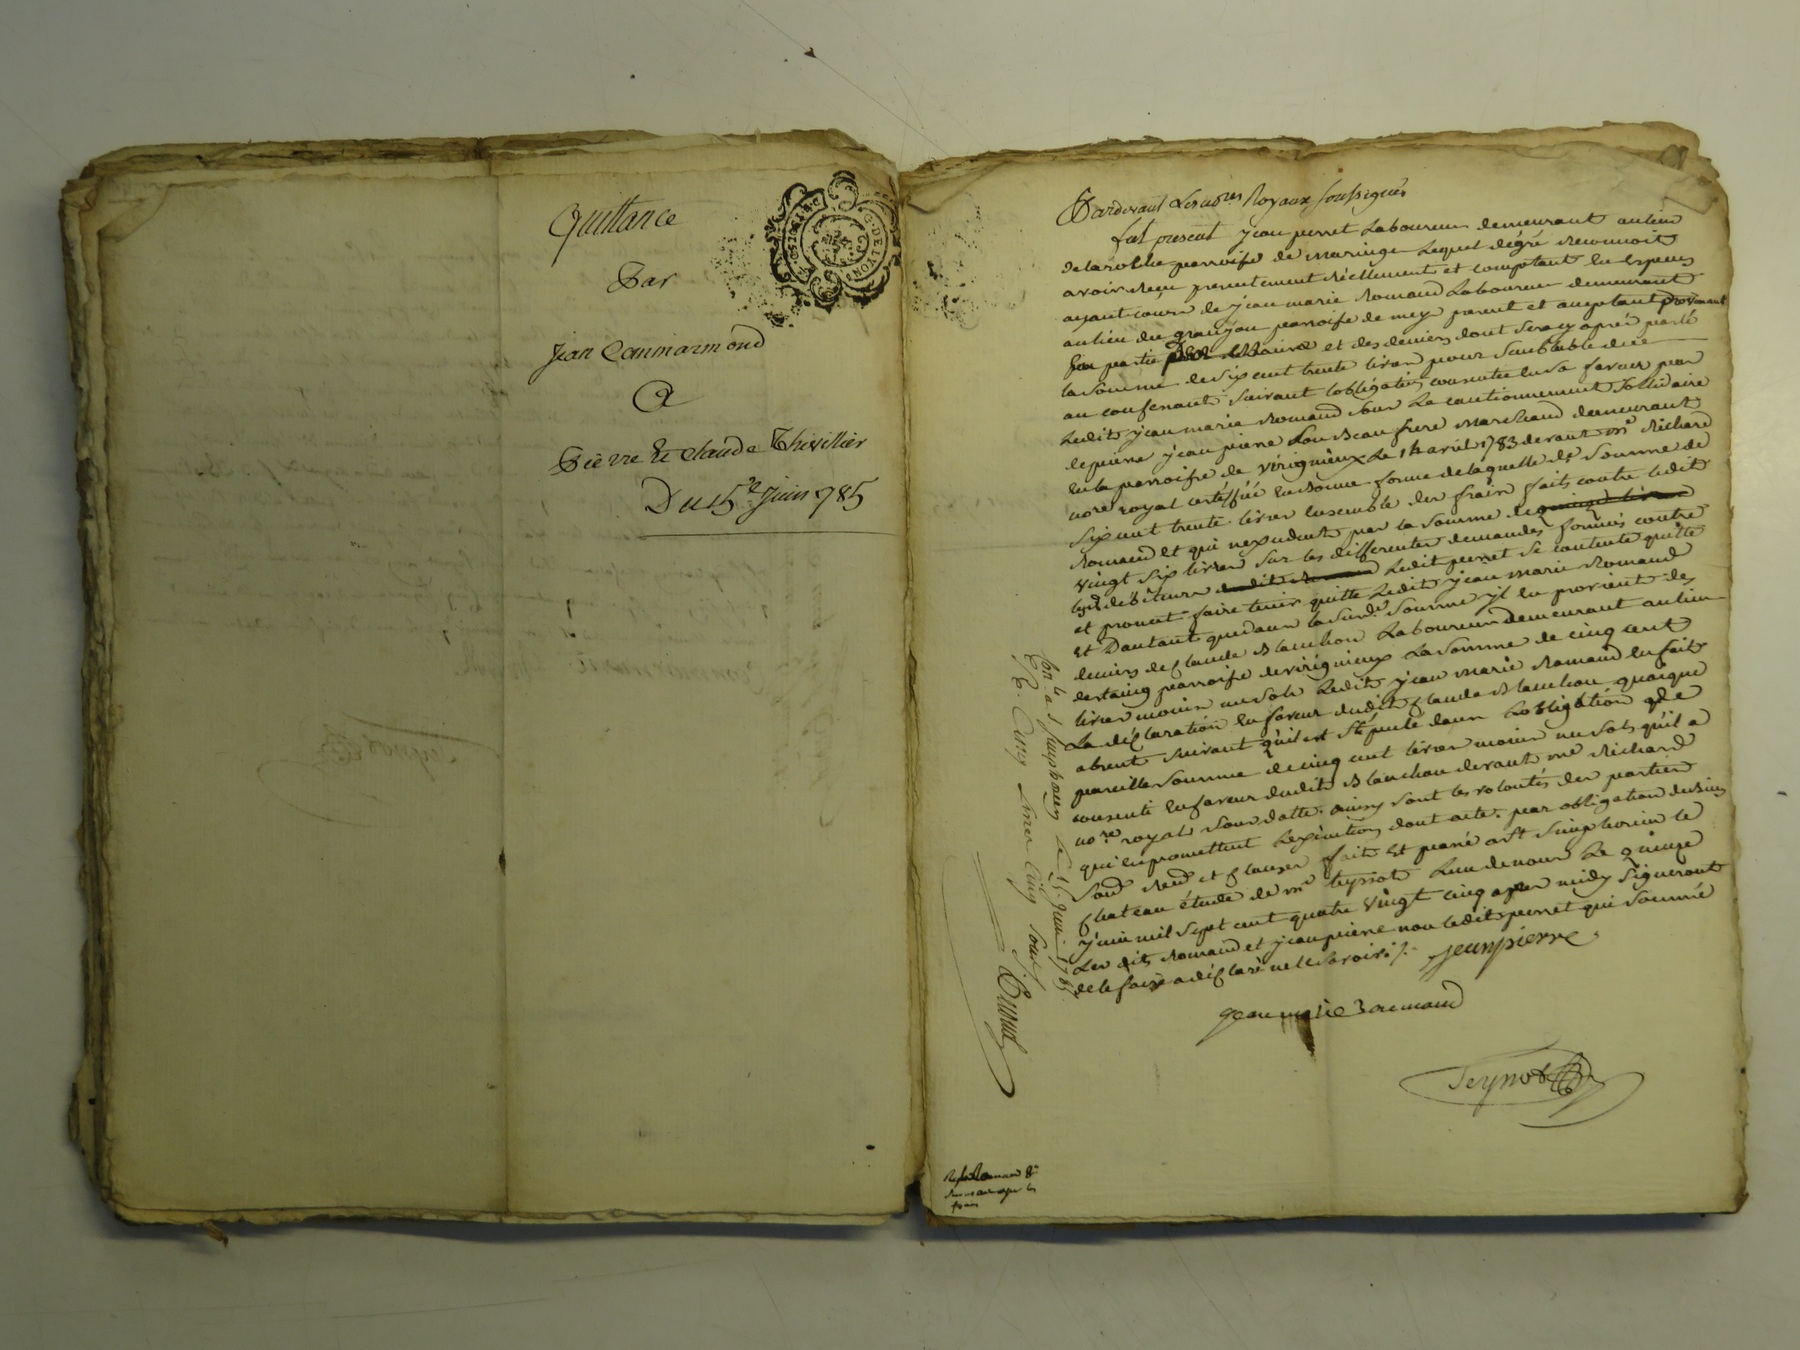 Quittance
Par
Jean Commarmond
A
Pierre et Claude Thivillier
Du 15e Juin 1785
G. DE LYON
Pardevant Les no.res Royaux soussignés
fut present jean perret Laboureur demeurant au lieu
de la roche parroisse de maringe Lequel dégré reconnoit
avoir recu presentement réellement et comptant en Especes
ayant cours de jean marie Romand Laboureur demeurant
au lieu du granjou parroisse de meys parent et acceptant provenant
En partie et des deniers dont sera cy après parlé
la somme de six cent trente livres pour semblable due
au confessant suivant lobligation consentie en sa faveur par
Ledit jean marie Romand sous Le cautionnement sollidaire
de pierre jean pierre son Beau frere marchand demeurant
en la parroisse de virignieux Le avril 1783 devant me Richard
nore royal en bonne forme de laquelle de somme de
six cent trente livres ensemble des frais faits contre ledit
Romand et qui par la somme de
vingt six livres sur les differentes demandes formés contre
debiteurs Ledit perret se contente quitte
et promet faire tenir quitte Ledit jean marie Romand
Et Dautant que dans la sus de somme il en provient des
deniers de Claude Blanchon Laboureur demeurant au lieu
parroisse de virignieux La somme de cinq cent
livres moins un sols Ledit jean marie Romand en fait
La déclaration en faveur dudit Claude Blanchon quoique
absent suivant qu'il est stipulé dans Lobligation de
pareille somme de cinq cent livres moins un sols qu'il a
consenti en faveur dudit Blanchon devant me Richard
nore royal sous datte. ainsy sont les volontés des parties
qui en promettent Lexecution dont acte. par obligation de biens
soud. renon. et clauses fait Et passé a st simphorien le
chateau étude de me teyssot Lun de nous Le quinze
juin mil sept cent quatre vingt cinq apres midy signeront
Les dits Romand et jean pierre non ledit perret qui sommé
de le faire a déclaré ne le savoir ./.
jeanpierre
jean marie Romand
Teyssot
Con.lé a s simphorien le 15. Juin 1785
R. Cinq Livres Cinq sous